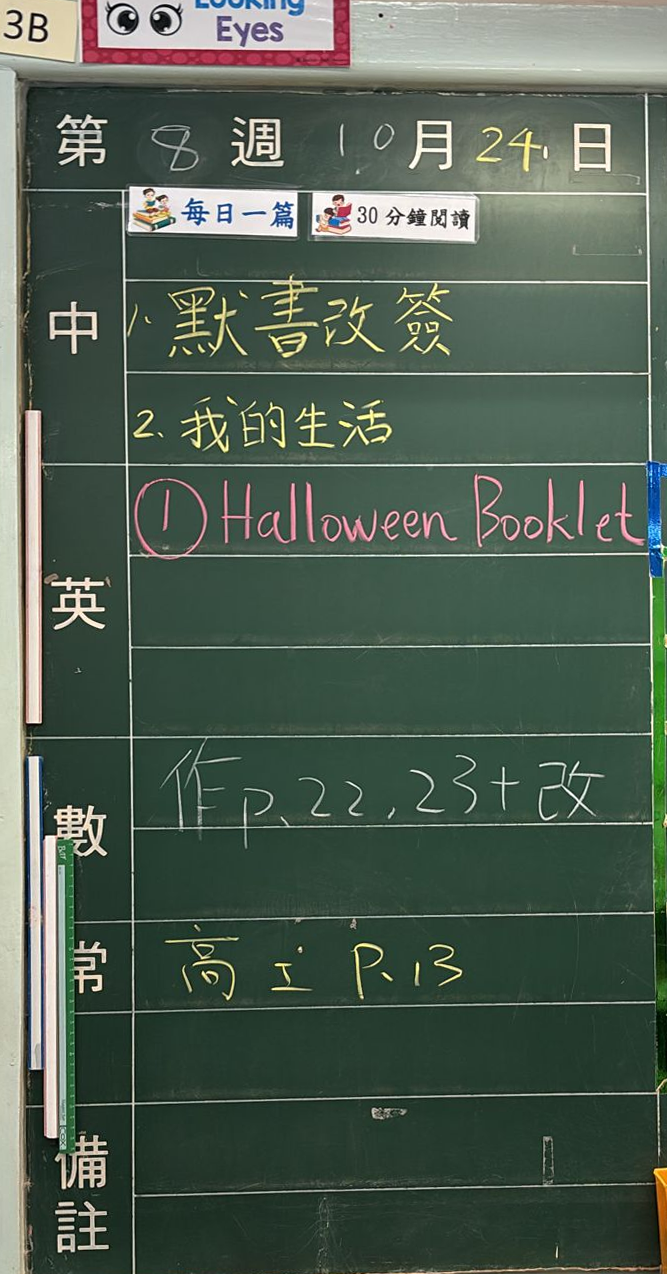 3B
Looking
Eyes
第 8 週 10 月 24 日
每日一篇 30分鐘閱讀
中
1. 默書改簽
2. 我的生活
英
① Halloween Booklet
數
作p.22,23+改
常
高工 P.13
備註